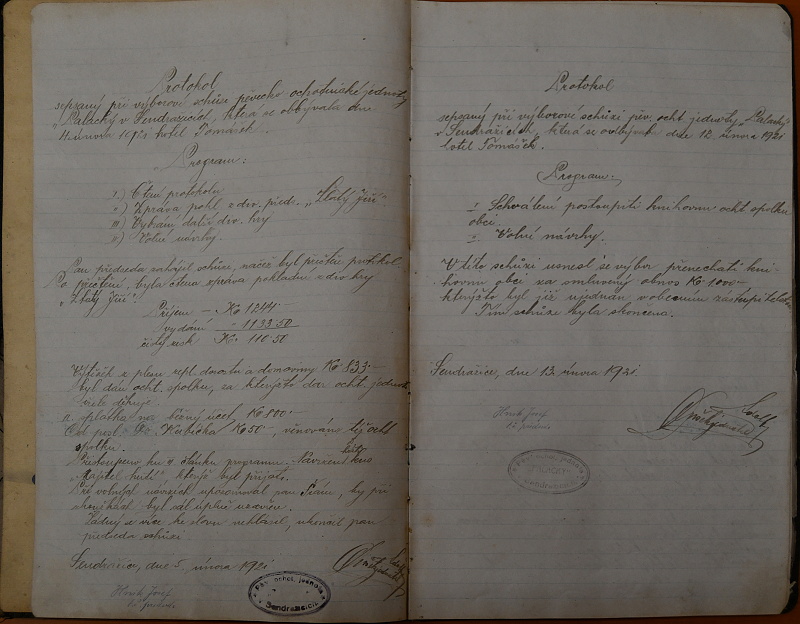 Protokol
sepsaný při výborové schůze pevecko ochotnické jednoty
„Palacký v Sendražicích, která se odbývala dne
4. února 1921 hotel Tomášek.
Program:
I.) Čtení protokolu
II) Zpráva pokl. z div. před. „Zlatý Jiří"
III) Vybrání další div. hry
IV) Volné návrhy.
Pan předseda zahájil schůzi, načež byl přečten protokol.
Po přečtení, byla čtena zpráva pokladní z div hry
„Zlatý Jiří".
Příjem – Kč 1244 –
vydání – 1133·50
čistý zisk Kč. 110·50
Výtěžek z plesu
byl dán ocht. spolku, za kterýžto dar ocht. jednota
vřele děkuje.
splátka na účel Kč 100·–
Od posl. Dr. Kubíčka Kč 50–, věnováno též ocht
spolku.
ku článku programu. Navržen kus
kterýž byl přijat.
Při volných návrzích upozorňoval pan
byl sál úplně uzavřen.
Žádný se více ke slovu nehlásil, ukončil pan
předseda schůzi
Sendražice, dne 5. února 1921
Pěv. ochot. jednota
Sendražicích
Protokol
sepsaný při výborové schůzi pěv. ocht jednoty „Palacký"
v Sendražicích, která se odbývala dne 12. února 1921
hotel Tomášek.
Program:
I Schválení postoupiti knihovnu ocht spolku
obci.
II Volné návrhy.
V této schůzi usnesl se výbor přenechati kni-
hovnu obci za smluvený obnos Kč 1000–
kterýžto byl již ujednán v obecním zastupitelstvu
Tím schůze byla skončena.
Sendražice, dne 13. února 1921
Sendražicích